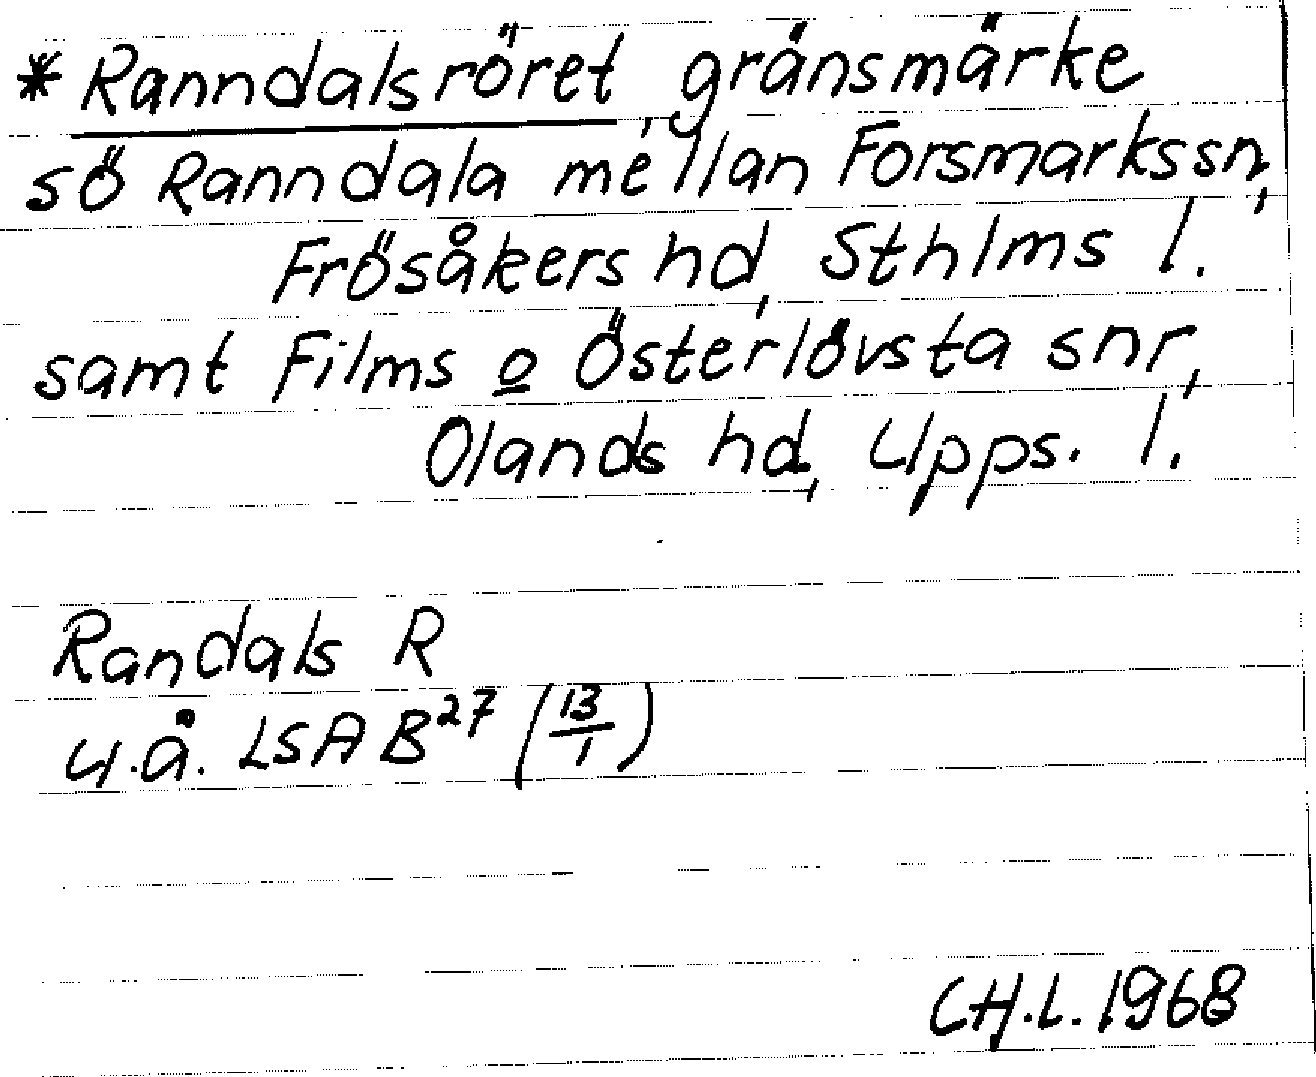 * Ranndalsröret, gränsmärke
sö Ranndala mellan Forsmarks sn,
Frösåkers hd, Sthlms l.
samt Films o Österlövsta snr,
Olands hd, Upps. l.
Randals R
u.å. LSA B²⁷ (13/1)
CH.L. 1968